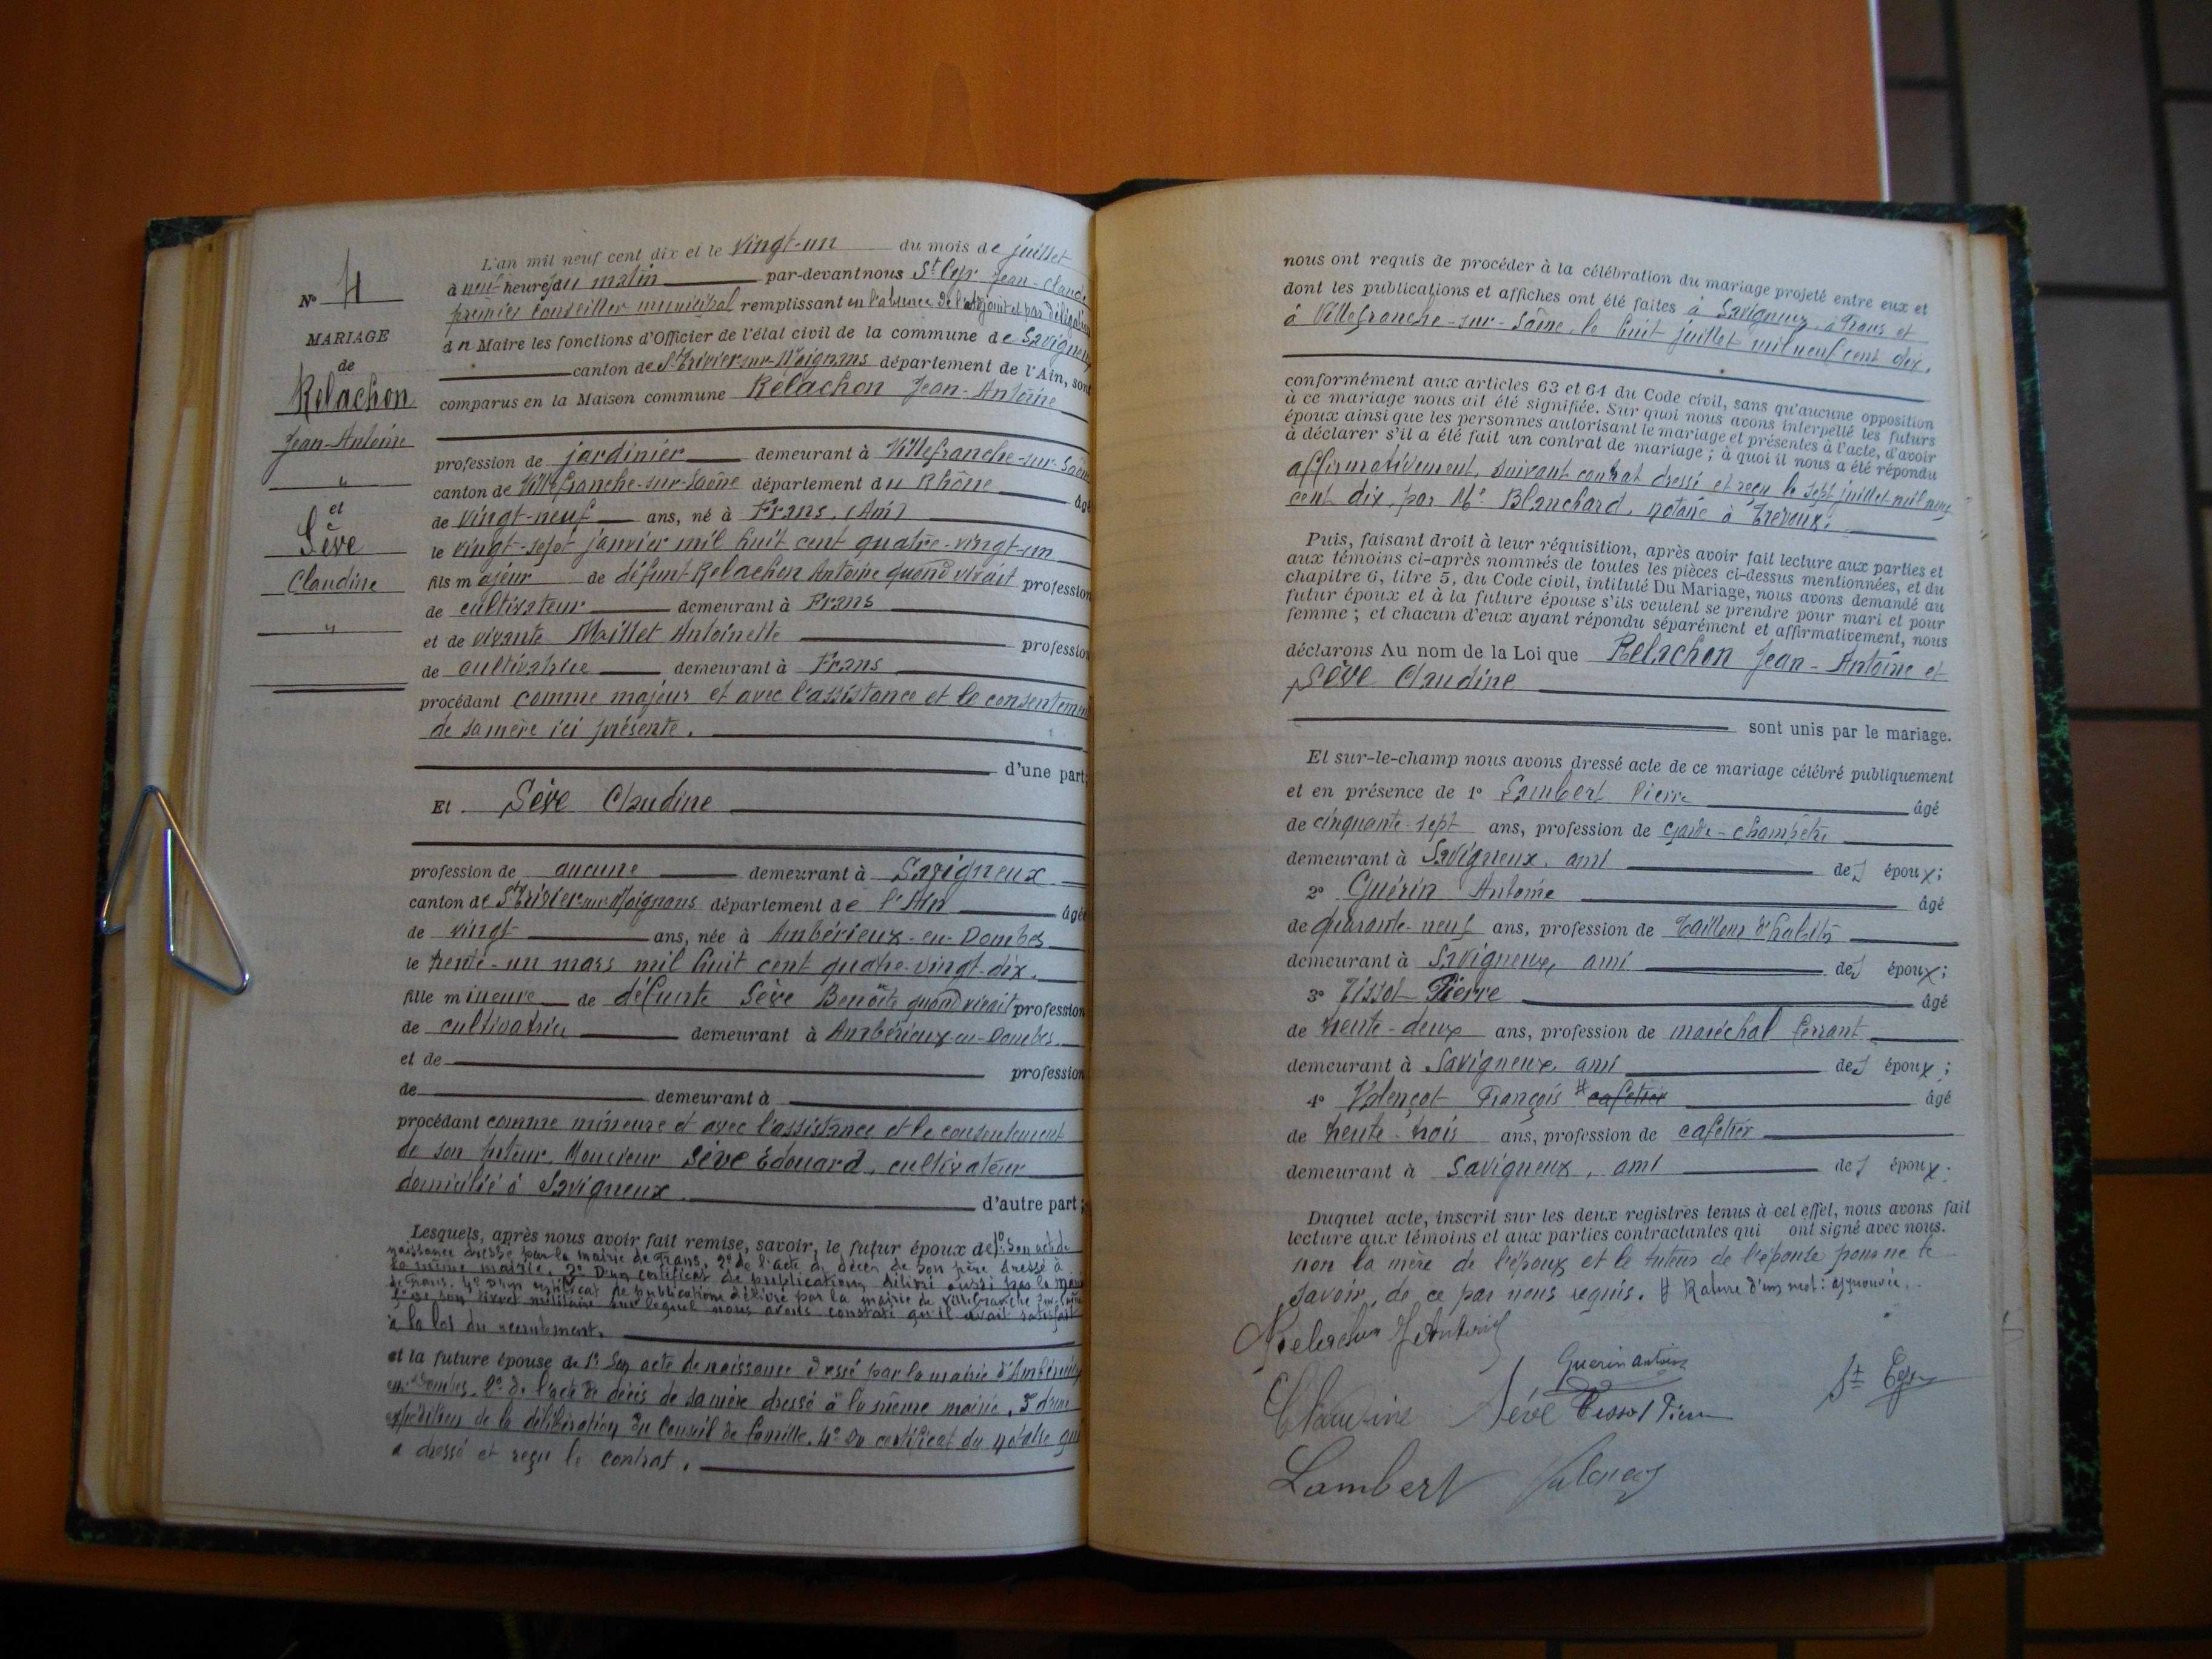 N° 4
MARIAGE
de
Relachon
Jean-Antoine
"
et
Sève
Claudine
"
L'an mil neuf cent dix et le vingt-un du mois de juillet
à neuf heures du matin par-devant nous St Cyr Jean-Claude
premier conseiller municipal remplissant en l'absence de l'adjoint et par délégation
du Maire les fonctions d'Officier de l'état civil de la commune de Savigneux
canton de St Trivier-sur-Moignans département de l'Ain, sont
comparus en la Maison commune Relachon Jean-Antoine
profession de jardinier demeurant à Villefranche-sur-Saône
canton de Villefranche-sur-Saône département du Rhône âgé
de vingt-neuf ans, né à Frans, (Ain)
le vingt-sept janvier mil huit cent quatre-vingt-un
fils majeur de défunt Relachon Antoine quand vivait profession
de cultivateur demeurant à Frans
et de vivante Maillet Antoinette profession
de cultivatrice demeurant à Frans
procédant comme majeur et avec l'assistance et le consentement
de sa mère ici présente.
d'une part;
Et Sève Claudine
profession de aucune demeurant à Savigneux
canton de St Trivier-sur-Moignans département de l'Ain âgée
de vingt ans, née à Ambérieux-en-Dombes
le trente-un mars mil huit cent quatre-vingt-dix.
fille mineure de défunte Sève Benoîte quand vivait profession
de cultivatrice demeurant à Ambérieux-en-Dombes
et de profession
de demeurant à
procédant comme mineure et avec l'assistance et le consentement
de son tuteur, Monsieur Sève Édouard, cultivateur
domicilié à Savigneux. d'autre part;
Lesquels, après nous avoir fait remise, savoir, le futur époux de 1° Son acte de
naissance dressé par la mairie de Frans, 2° de l'acte de décès de son père dressé à
la même mairie. 3° D'un certificat de publication délivré aussi par la mairie
de Frans. 4° D'un certificat de publications délivré par la mairie de Villefranche-sur-Saône
5° de son livret militaire sur lequel nous avons constaté qu'il avait satisfait
à la loi du recrutement.
et la future épouse de 1° Son acte de naissance dressé par la mairie d'Ambérieux
en-Dombes, 2° de l'acte de décès de sa mère dressé à la même mairie, 3° d'une
expédition de la délibération du Conseil de famille. 4° Du certificat du notaire qui
a dressé et reçu le contrat.
nous ont requis de procéder à la célébration du mariage projeté entre eux et
dont les publications et affiches ont été faites à Savigneux, à Frans et
à Villefranche-sur-Saône, le huit juillet mil neuf cent dix,
conformément aux articles 63 et 64 du Code civil, sans qu'aucune opposition
à ce mariage nous ait été signifiée. Sur quoi nous avons interpellé les futurs
époux ainsi que les personnes autorisant le mariage et présentes à l'acte, d'avoir
à déclarer s'il a été fait un contrat de mariage ; à quoi il nous a été répondu
affirmativement, suivant contrat dressé et reçu le sept juillet mil neuf
cent dix, par Me Blanchard, notaire à Trévoux.
Puis, faisant droit à leur réquisition, après avoir fait lecture aux parties et
aux témoins ci-après nommés de toutes les pièces ci-dessus mentionnées, et du
chapitre 6, titre 5, du Code civil, intitulé Du Mariage, nous avons demandé au
futur époux et à la future épouse s'ils veulent se prendre pour mari et pour
femme ; et chacun d'eux ayant répondu séparément et affirmativement, nous
déclarons Au nom de la Loi que Relachon Jean-Antoine et
Sève Claudine
sont unis par le mariage.
Et sur-le-champ nous avons dressé acte de ce mariage célébré publiquement
et en présence de 1° Lambert Pierre âgé
de cinquante-sept ans, profession de garde-champêtre
demeurant à Savigneux, ami des époux;
2° Guérin Antoine âgé
de quarante-neuf ans, profession de tailleur d'habits
demeurant à Savigneux, ami des époux;
3° Tissot Pierre âgé
de trente-deux ans, profession de maréchal ferrant
demeurant à Savigneux, ami des époux;
4° Valençot François # cafetier âgé
de trente-trois ans, profession de cafetier
demeurant à Savigneux, ami des époux.
Duquel acte, inscrit sur les deux registres tenus à cet effet, nous avons fait
lecture aux témoins et aux parties contractantes qui ont signé avec nous.
non la mère de l'époux et le tuteur de l'épouse pour ne le
savoir, de ce par nous requis. # Rature d'un mot: approuvée.
Relachon J Antoine
Guerin antoine
St Cyr
Claudine Sève Tissot Pierre
Lambert Valençot